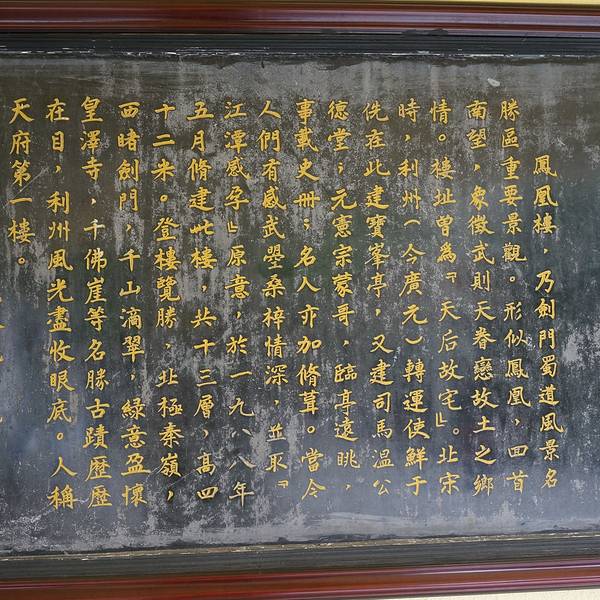 鳳凰樓，乃劍門蜀道風景名
勝區重要景觀。形似鳳凰，回首
南望，象徵武則天眷戀故土之鄉
情。樓址曾爲『天后故宅』。北宋
時，利州（今廣元）轉運使鮮于
侁在此建寶峯亭，又建司馬溫公
德堂；元憲宗蒙哥，臨亭遠眺，
事載史冊；名人亦加脩葺。當今
人們有感武曌桑梓情深，並取『
江潭感孕』原意，於一九八八年
五月脩建此樓，共十三層，高四
十二米。登樓覽勝，北極秦嶺，
西睹劍門，千山滴翠，綠意盈懷
皇澤寺，千佛崖等名勝古蹟歷歷
在目，利州風光盡收眼底。人稱
天府第一樓。